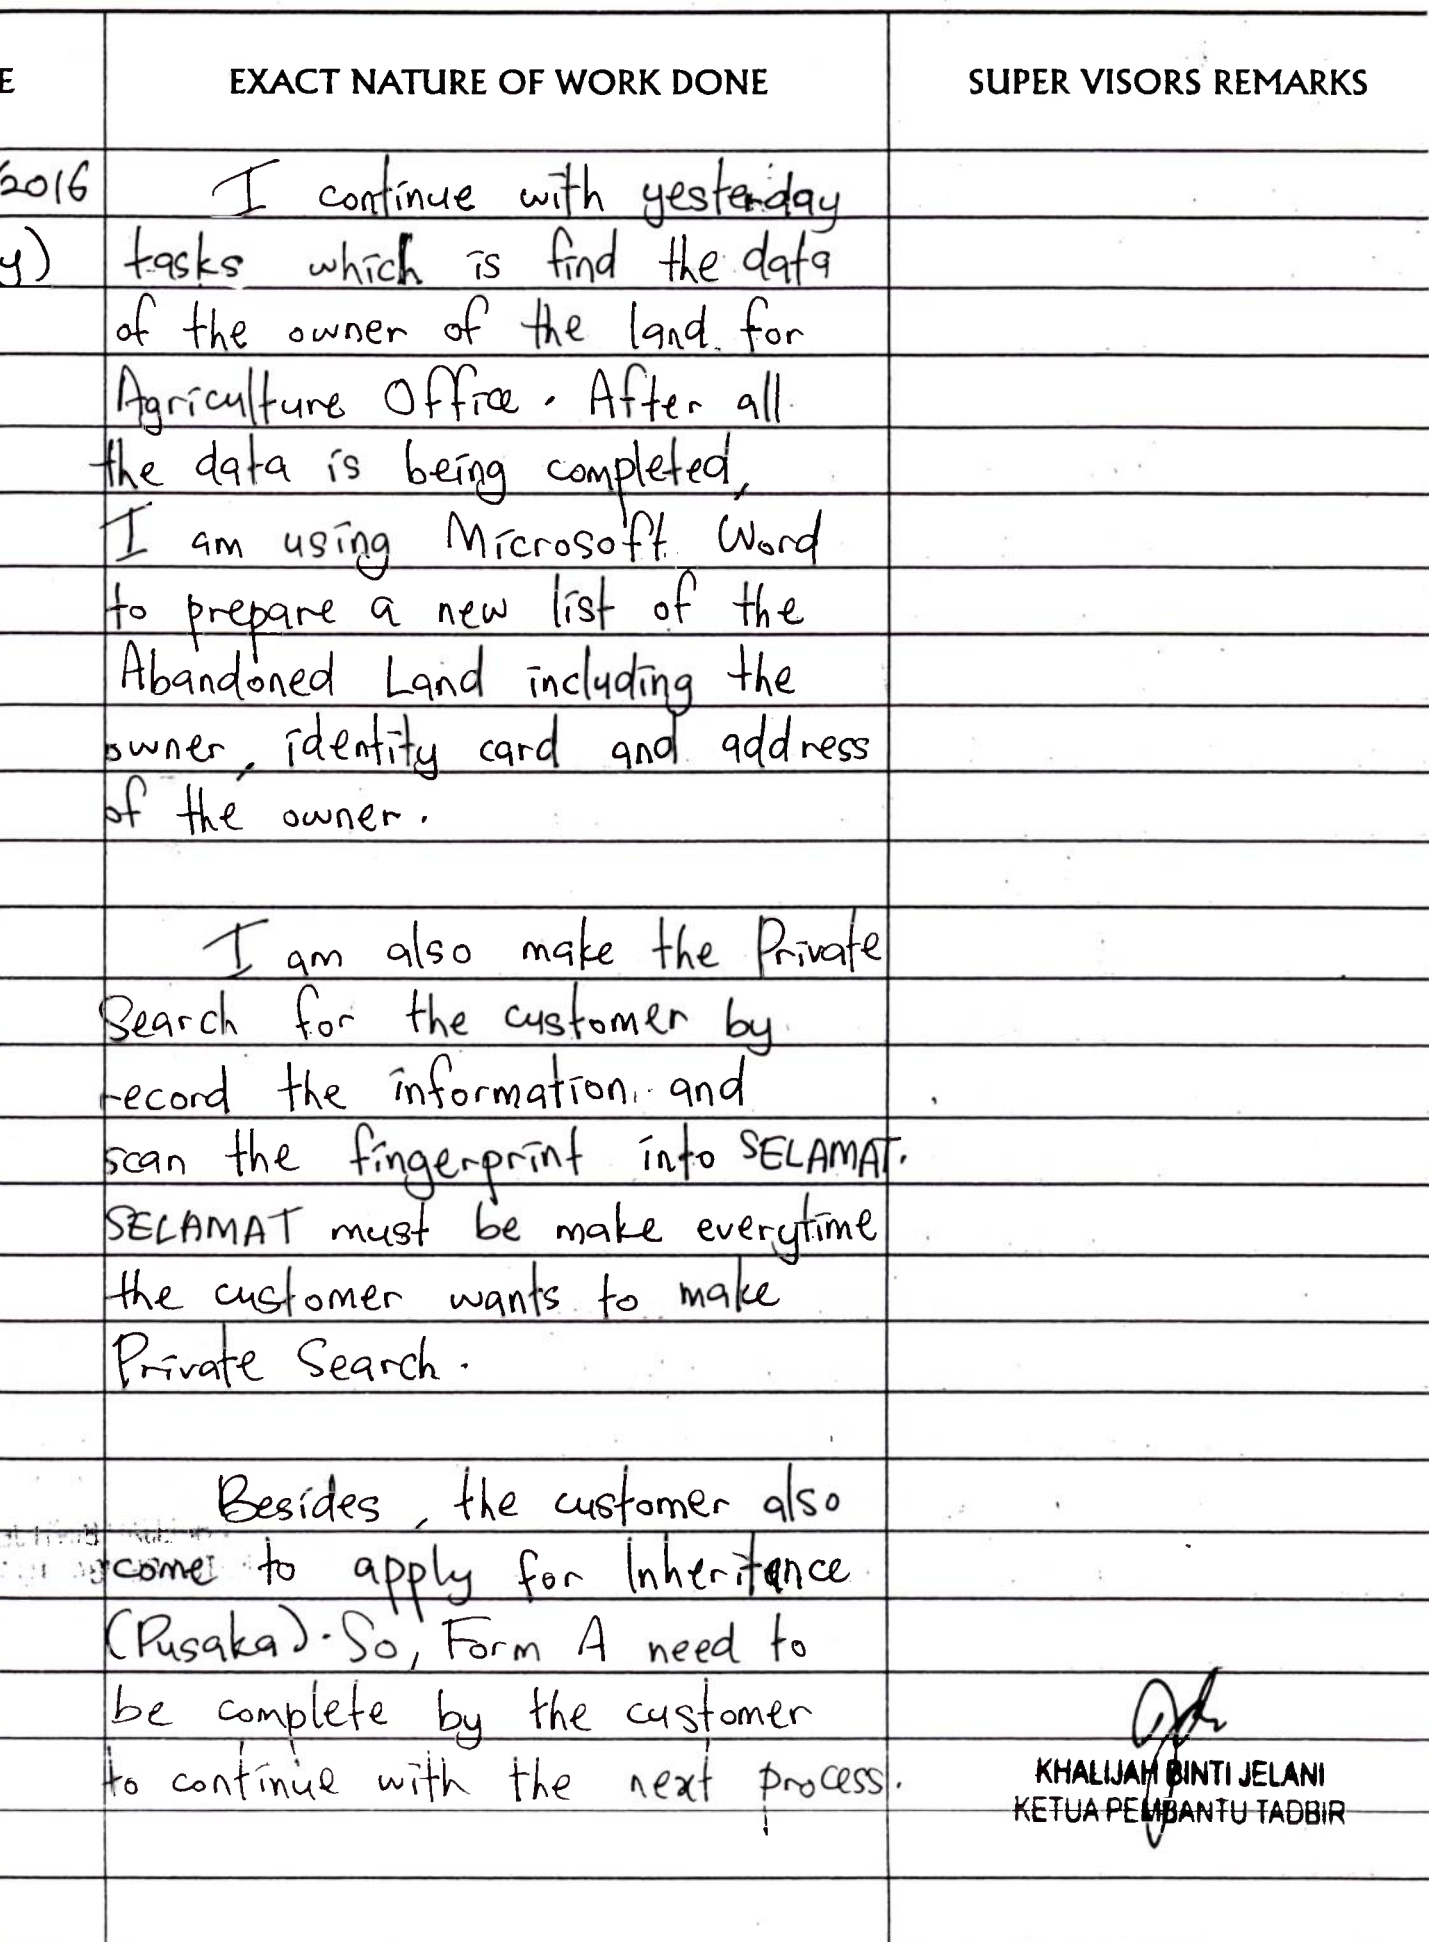 E EXACT NATURE OF WORK DONE SUPER VISORS REMARKS
/2016 I continue with yesterday
y) tasks which is find the data
of the owner of the land for
Agriculture Office. After all
the data is being completed,
I am using Microsoft Word
to prepare a new list of the
Abandoned Land including the
owner, identity card and address
of the owner.
I am also make the Private
Search for the customer by
record the information and
scan the fingerprint into SELAMAT.
SELAMAT must be make everytime
the customer wants to make
Private Search.
Besides, the customer also
come to apply for Inheritance
(Pusaka). So, Form A need to
be complete by the customer
to continue with the next process.
KHALIJAH BINTI JELANI
KETUA PEMBANTU TADBIR